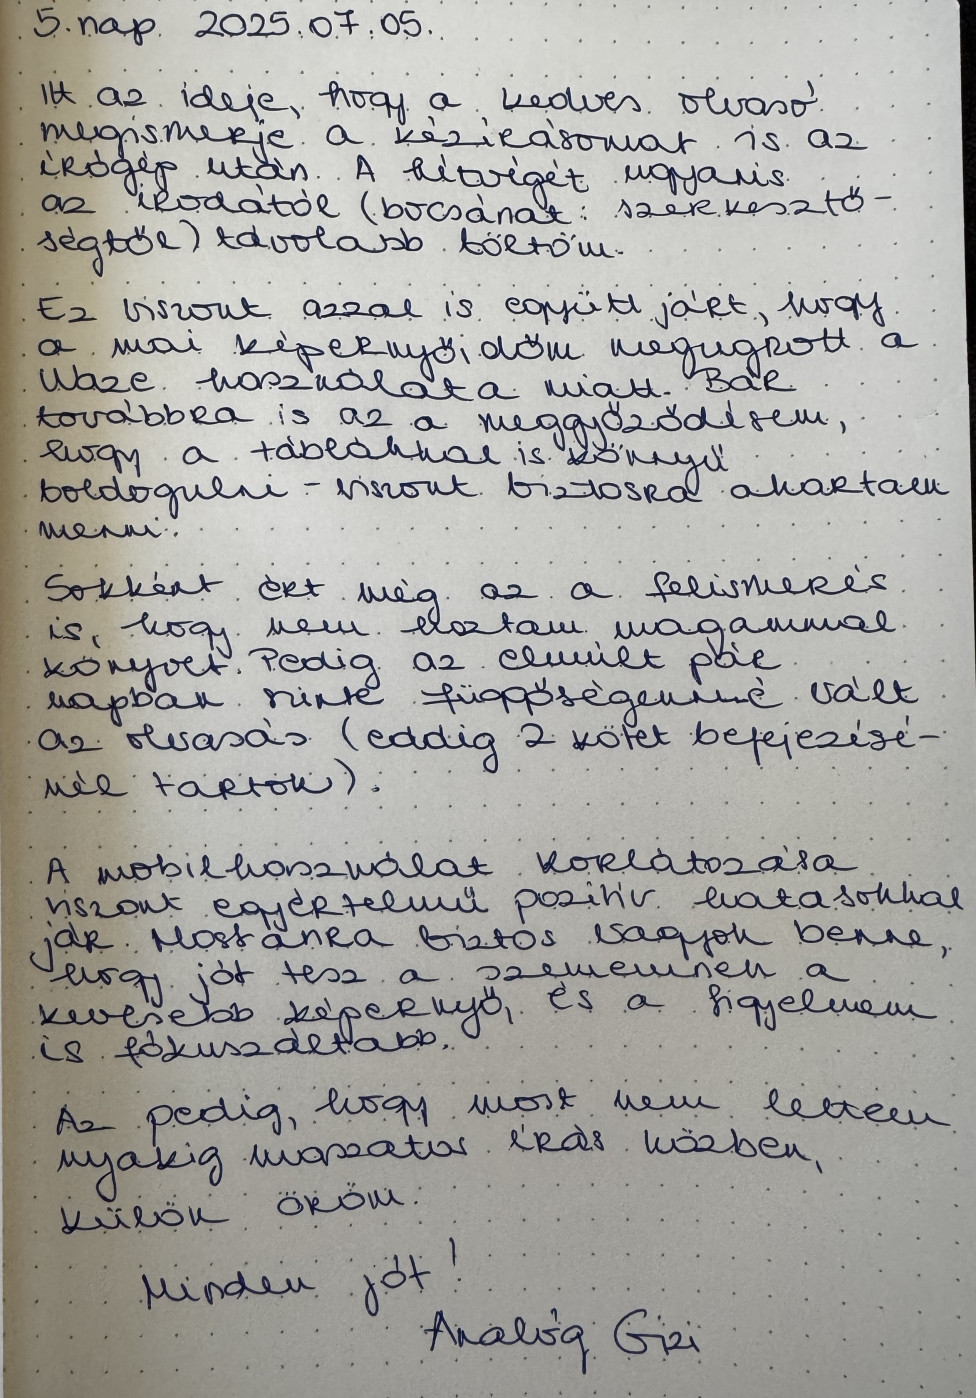 5. nap 2025.07.05.
Itt az ideje, hogy a kedves olvasó
megismerje a kézírásomat is az
írógép után. A hétvégét ugyanis
az irodától (bocsánat: szerkesztő-
ségtől) távolabb töltöm.
Ez viszont azzal is együtt járt, hogy
a mai képernyőidőm megugrott a
Waze használata miatt. Bár
továbbra is az a meggyőződésem,
hogy a táblákkal is könnyű
boldogulni - viszont biztosra akartam
menni.
Sokként ért még az a felismerés
is, hogy nem hoztam magammal
könyvet. Pedig az elmúlt pár
napban szinte függőségemmé vált
az olvasás (eddig 2 kötet befejezésé-
nél tartok).
A mobilhasználat korlátozása
viszont egyértelmű pozitív hatásokkal
jár. Mostanra biztos vagyok benne,
hogy jót tesz a szememnek a
kevesebb képernyő, és a figyelmem
is fókuszáltabb.
Az pedig, hogy most nem lettem
nyakig maszatos írás közben,
külön öröm.
Minden jót!
Analóg Gizi